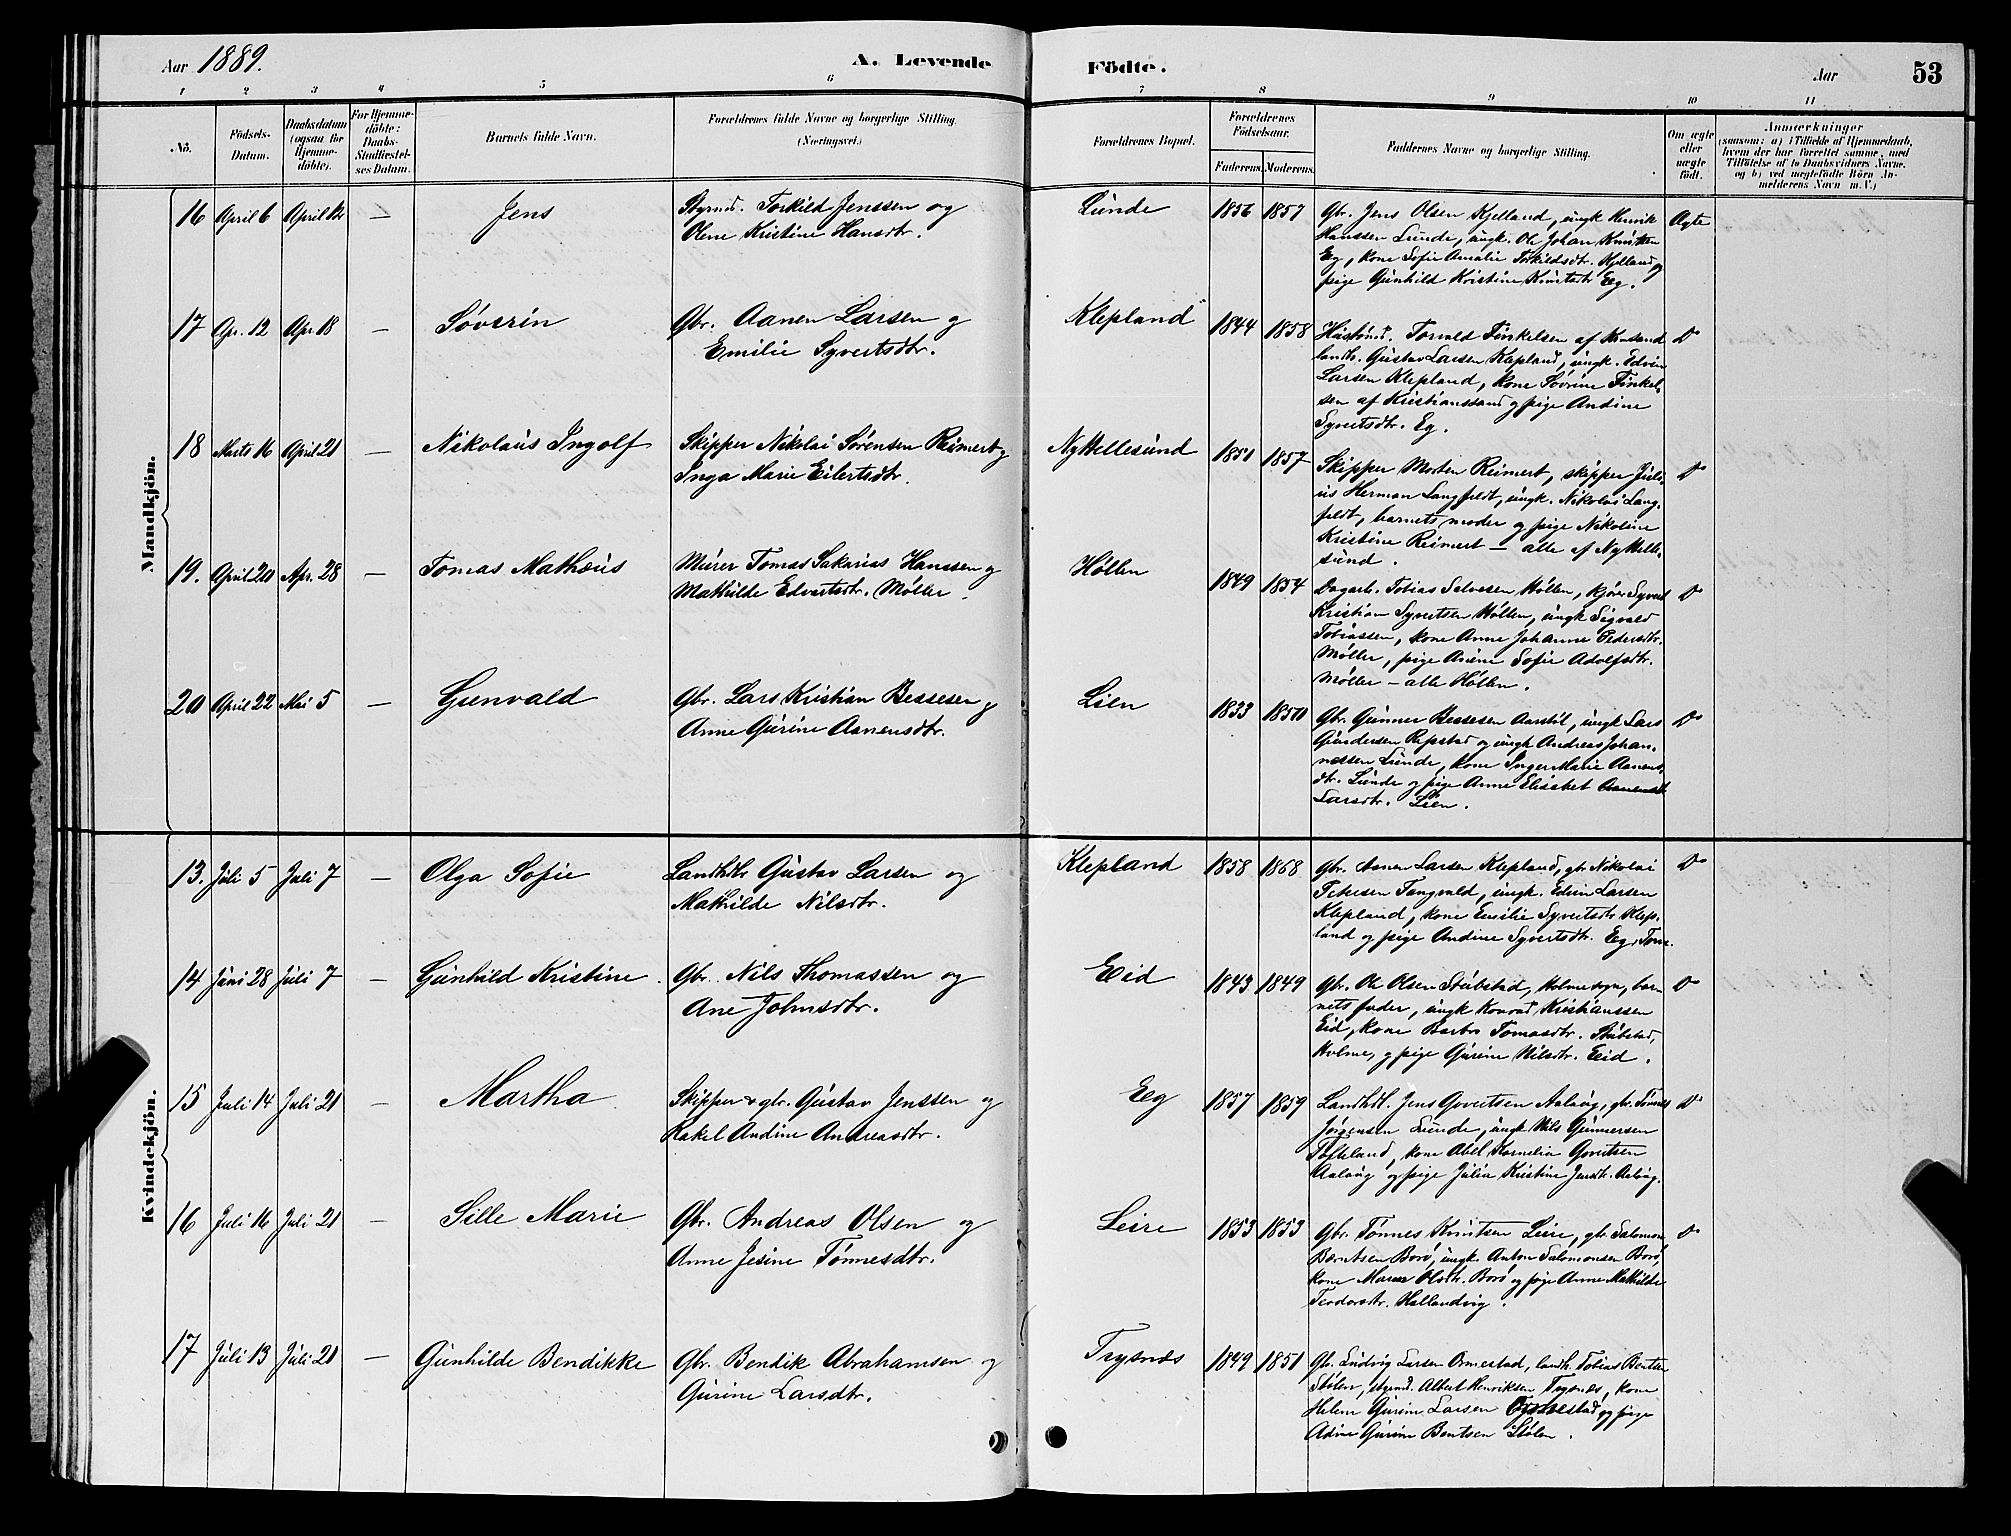 Aar 1889.
A. Levende
Födte.
Aar
53
1
2
3
4
5
6
7
8
9
10
11
No.
Födsels-
Datum.
Daabsdatum
(ogsaa for
Hjemme-
döbte).
For Hjemme-
döbte:
Daabs-
Stadfæstel-
ses Datum.
Barnets fulde Navn.
Forældrenes fulde Navne og borgerlige Stilling.
(Næringsvei.)
Forældrenes Bopæl.
Forældrenes
Födselsaar.
Faderens.
Moderens.
Faddernes Navne og borgerlige Stilling.
Om ægte
eller
uægte
födt.
Anmærkninger
(saasom: a) i Tilfælde af Hjemmedaab,
hvem der har forrettet samme, med
Tilføielse af to Daabsvidners Navne,
og b) ved uægtefödte Börn An-
melderens Navn m. V.)
Mandkjön.
16 April 6 April 12 — Jens
Styrmd. Torkild Jenssen og
Olene Kristine Hansdtr.
Lunde 1856 1857
Gbr. Jens Olsen Kjelland, ungk Henrik
Hanssen Lunde, ungk. Ole Johan Knutsen
Eg, kone Sofie Amalie Torkildsdtr. Kjelland og
pige Gunhild Kristine Knutsdtr Eg.
Ægte
17 Ap. 12 Apr 18 — Søverin
Gbr. Aanen Larsen og
Emilie Syvertsdtr.
Klepland 1844 1858
Torvald Finkelsen af Krsand
landh. Gustav Larsen Klepland, ungk. Edvin
Larsen Klepland, kone Sovrine Finkel-
sen af Kristianssand og pige Andine
Syvertsdtr. Eg.
Do
18 Marts 16 April 21 — Nikolaus Ingolf
Skipper Nikolai Sørensen Reimert og
Inga Marie Eilertsdtr.
Ny Hellesund 1851 1857
Skipper Morten Reimert, skipper Juli-
us Herman Langfeldt, ungk. Nikolai Lang-
feldt, barnets moder og pige Nikoline
Kristine Reimert — alle af Ny Helle-
sund.
Do
19. April 20 Apr. 28 — Tomas Mathæus
Murer Tomas Sakarias Hanssen og
Mathilde Edvertsdtr. Møller.
Höllen 1849 1854
Dagarb. Tobias Salvesen Höllen, kjører Syvert
Kristian Syvertsen Höllen, ungk Sigvald
Tobiassen, kone Anne Johanne Pedersdtr.
Møller, pige Anene Sofie Adolfsdtr.
Møller — alle Höllen.
Do
20 April 22 Mai 5 — Grenvald
Gbr. Lars Kristian Bessesen og
Anne Gurine Aanensdtr.
Lien 1833 1850
Gbr. Gunner Bessesen Aarstöl, ungk Lars
Gundersen Repstad og ungk Andreas Johan-
nessen Lunde, kone Inger Marie Aanens-
dtr. Lunde og pige Anne Elisabet
Larsdtr. Lien.
Do
Kvindekjön.
13. Juli 5 Juli 7 — Olga Sofie
Landhdlr Gustav Larsen og
Mathilde Nilsdtr.
Klepland 1858 1868
Gbr. Aanen Larsen Klepland, gbr Nikolai
Petersen Tangvald, ungk. Edvin Larsen
Klepland, kone Emilie Syvertsdtr Klep-
land og pige Andine Syvertsdtr. Eg,
Do
14 Juni 28 Juli 7 — Gunhild Kristine
Gbr. Nils Thomassen og
Ane Johnsdtr.
Eid 1843 1849
Gbr. Ole Olsen Stubstad, Holme sogn, bar-
nets fader, ungk Konrad Kristianssen
Eid, kone Barbro Tomasdtr. Stubstad,
Holme, og pige Gurine Nilsdtr. Eid.
Do
15 Juli 14 Juli 21 — Martha
Skipper & gbr. Gustav Jenssen og
Rakel Andine Andreasdtr.
Eg 1857 1859
Landhdl. Jens Govertsen Aalaug, gbr. Tønnes
Jörgensen Lunde, ungk Nils Gunnersen
Tofteland, kone Abel Kornelia Govertsen
Aalaug og pige Julia Kristine Jensdtr. Aalaug.
Do
16 Juli 16 Juli 21 — Sille Marie
Gbr. Andreas Olsen og
Anne Jesine Tønnesdtr.
Leire 1853 1853
Gbr. Tønnes Knutsen Leire, gbr Salomon
Berntsen Borö, ungk. Anton Salomonsen Borö,
kone Maren Olsdtr. Borö og pige Anne Mathilde
Teodorsdtr. Hallandvig.
Do
17 Juli 13 Juli 21 — Gunhilde Bendikke
Gbr. Bendik Abrahamsen og
Gurine Larsdtr.
Trysnes 1849 1851
Gbr. Ludvig Larsen Ormestad, landh. Tobias Bentsen
Stölen, styrmd. Albert Henriksen Trysnes, kone
Helene Gurine Larsen Ormestad og pige
Adine Gurine Bentsen Stölen.